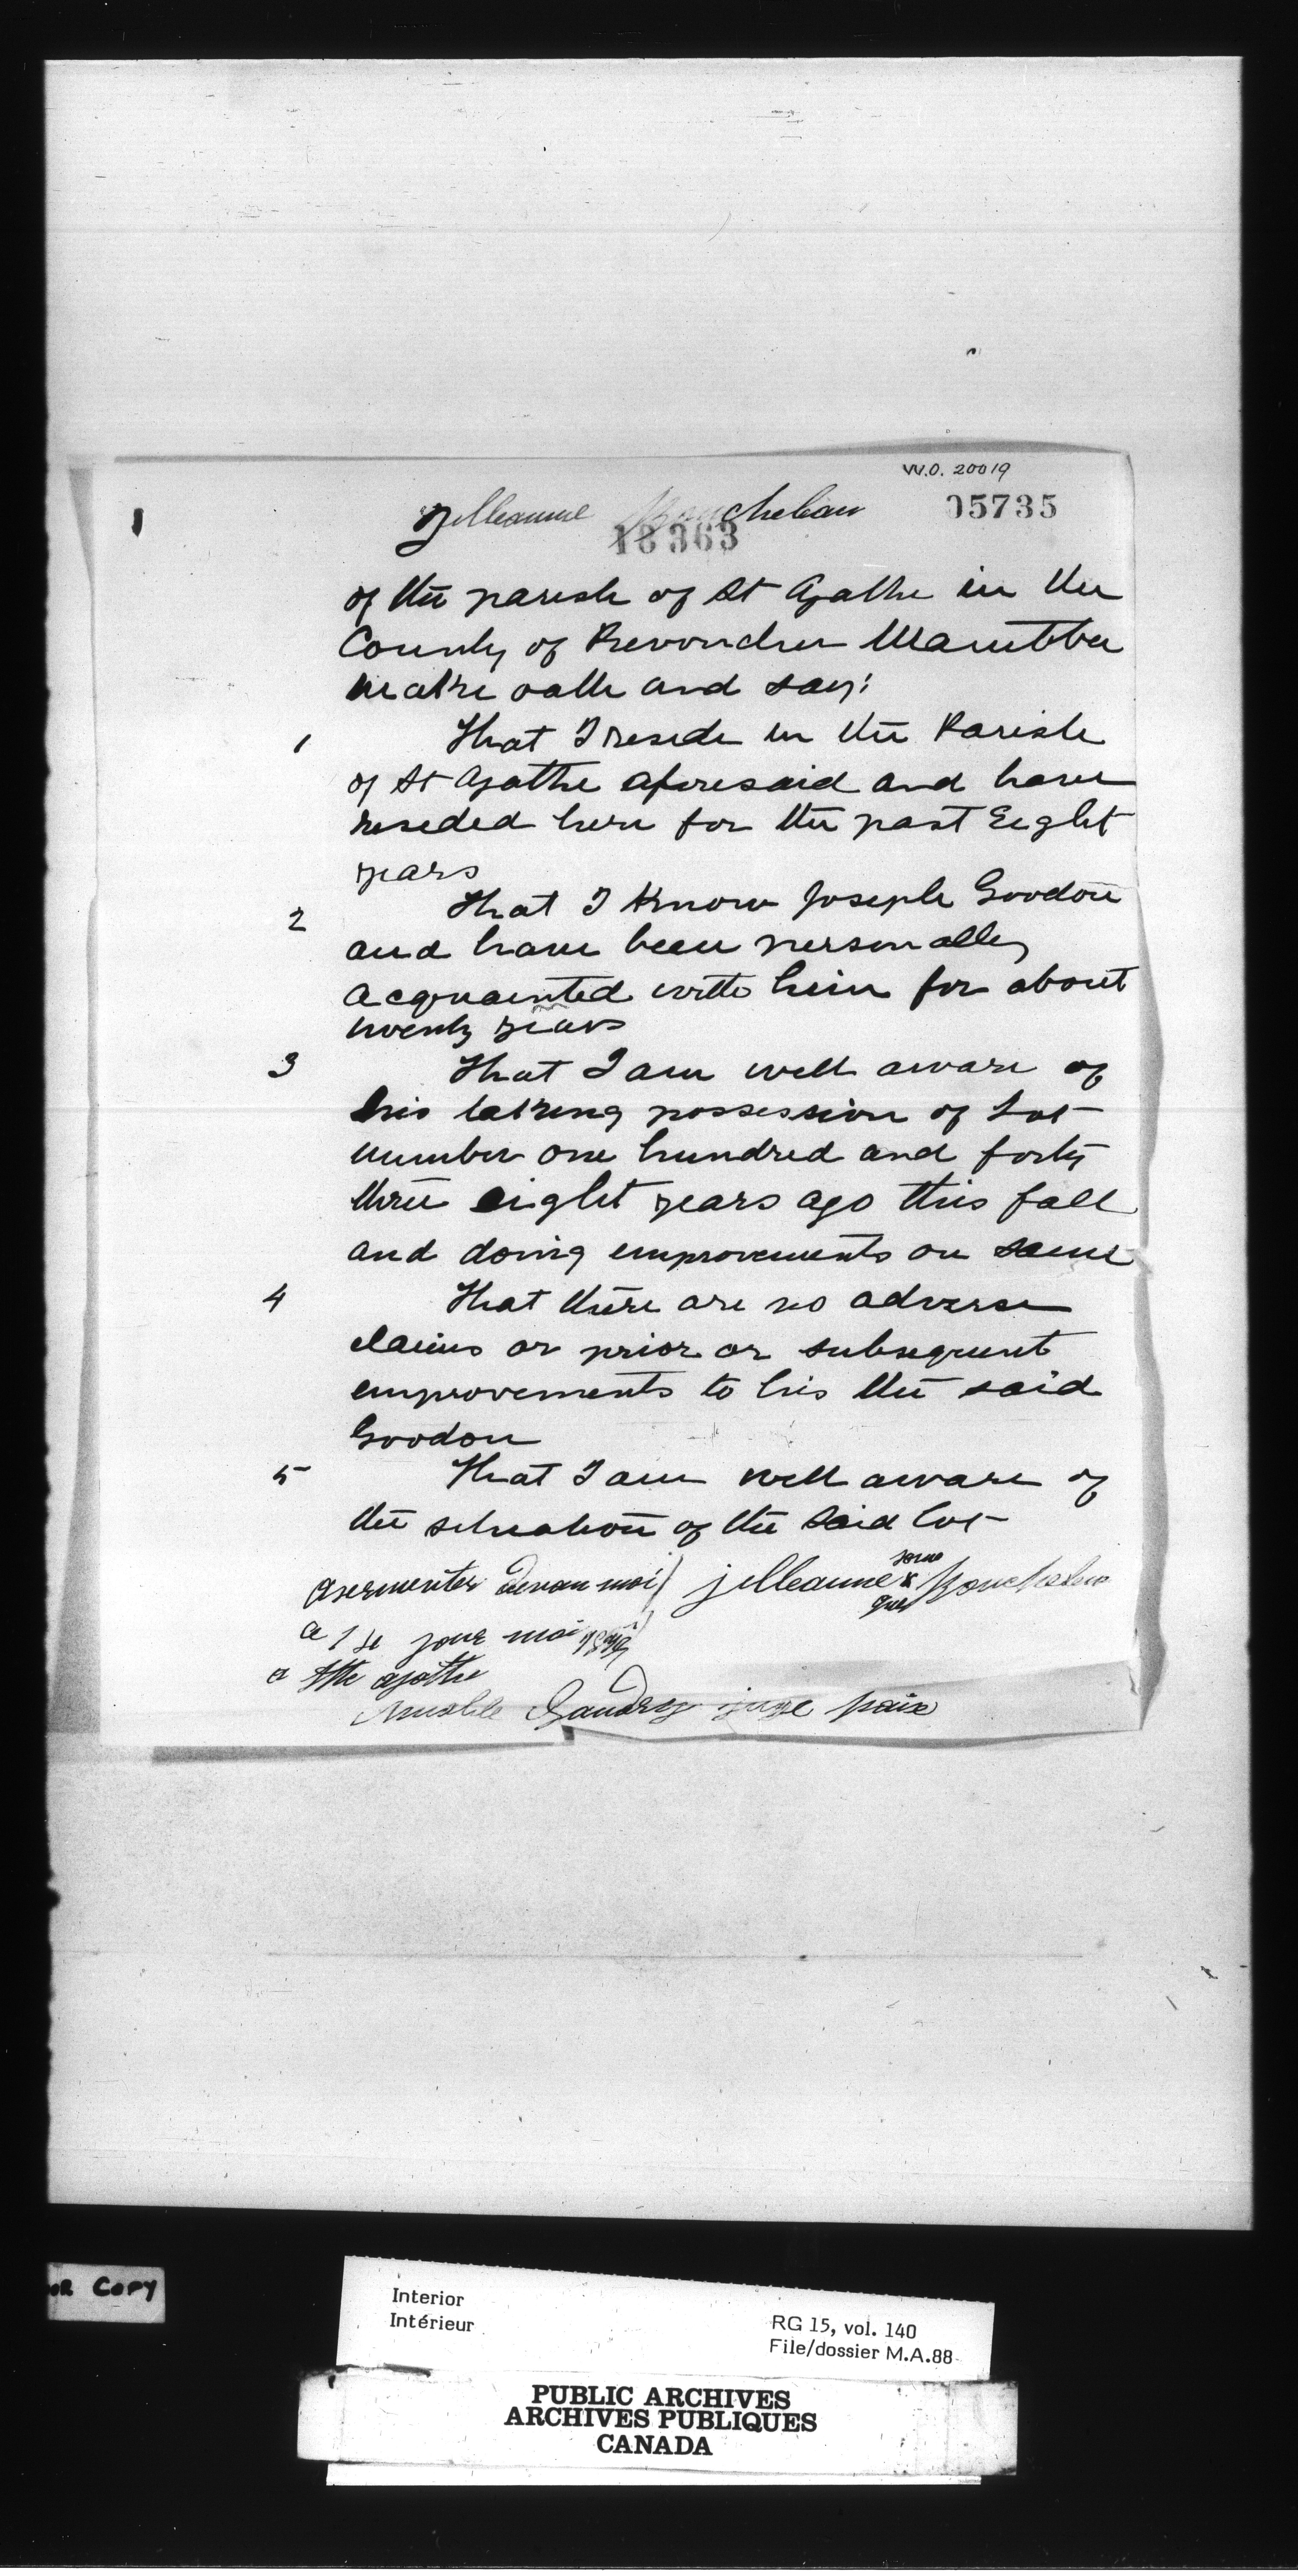 W.O. 20019
05735
Jelleaume Bouchebau
18363
of the parish of St Agathe in the
County of Provencher Manitoba
make oath and say:
1 That I reside in the Parish
of St Agathe aforesaid and have
resided here for the past Eight
years
2 That I know Joseph Goodon
and have been personally
acquainted with him for about
twenty years
3 That I am well aware of
his taking possession of Lot
number one hundred and forty
three eight years ago this fall
and doing improvements on same
4 That there are no adverse
claims or prior or subsequent
improvements to his the said
Goodon
5 That I am well aware of
the situation of the said lot
asermenter devan moi jelleaume x
ce 1 jour mai
a Ste agathe
Gaudry juge paix
OR COPY
Interior
Intérieur
RG 15, vol. 140
File/dossier M.A.88
PUBLIC ARCHIVES
ARCHIVES PUBLIQUES
CANADA